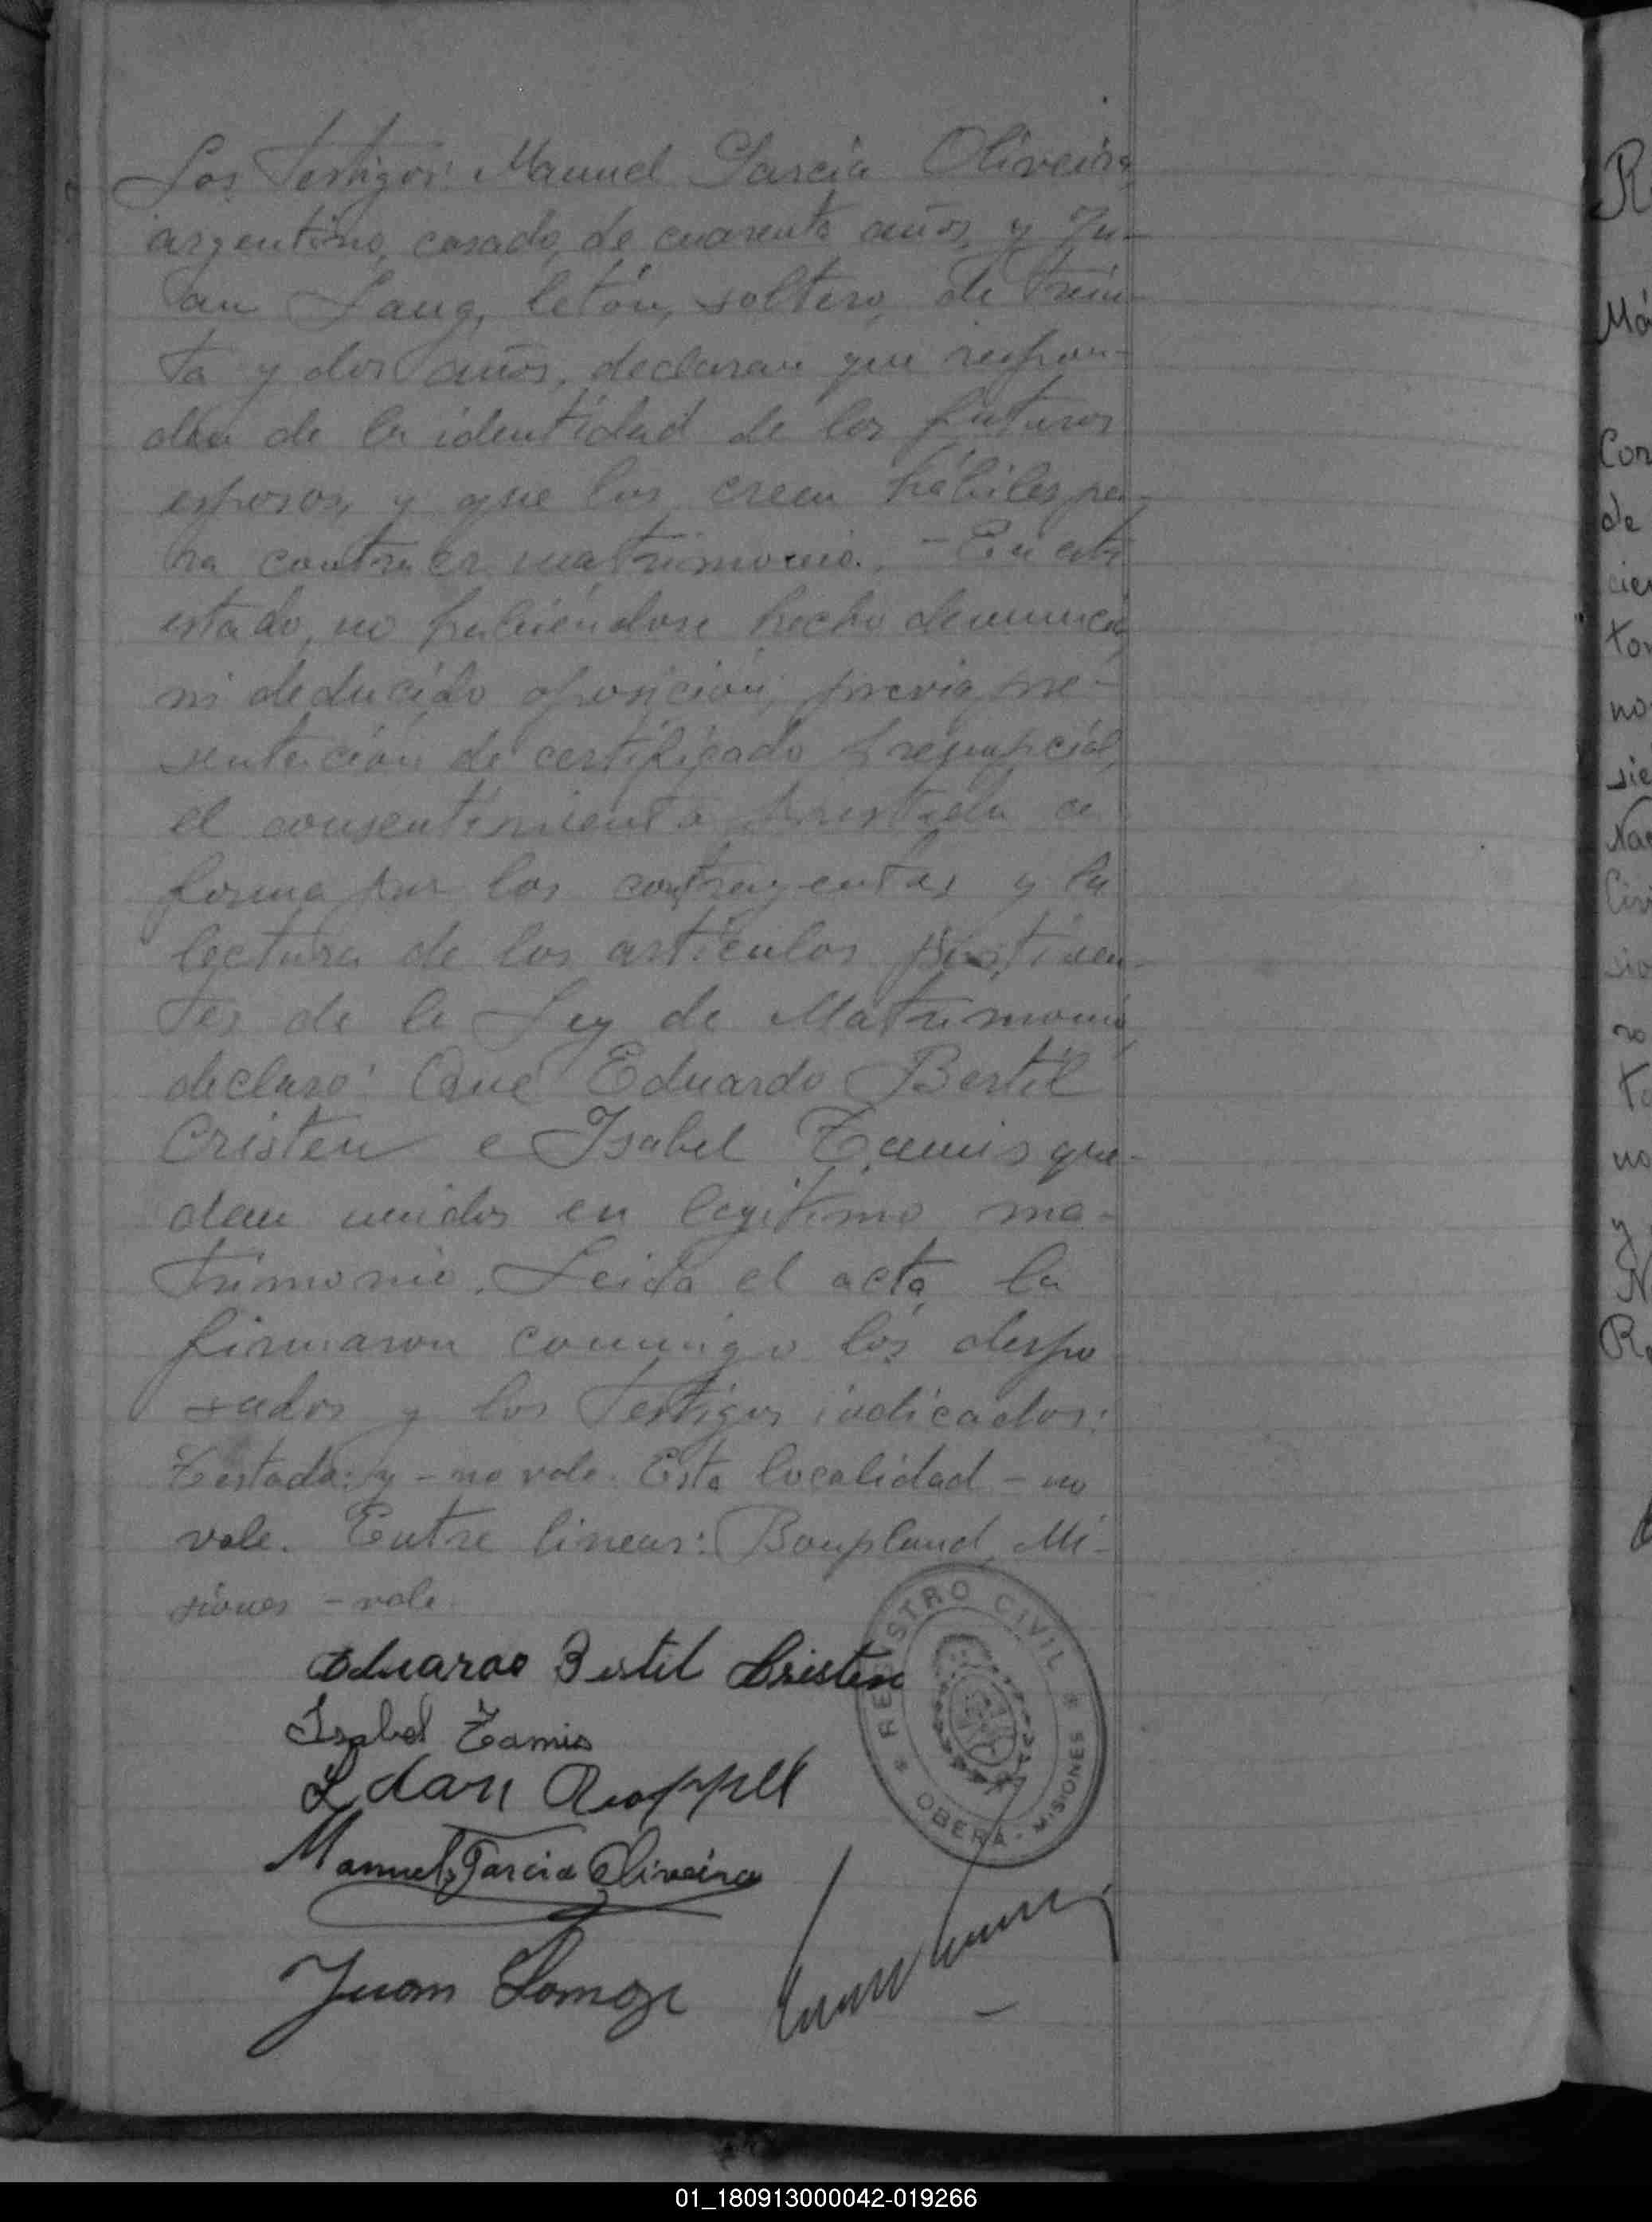 Los testigos: Manuel García Oliveira,
argentino, casado, de cuarenta años, y Ju-
an Lang, letón, soltero, de trein-
ta y dos años, declaran que respon-
den de la identidad de los futuros
esposos, y que los creen hábiles pa-
ra contraer matrimonio. - En este
estado, no habiéndose hecho denuncia,
ni deducido oposición, previa pre-
sentación de certificado prenupcial,
el consentimiento prestado en
forma por los contrayentes y la
lectura de los artículos pertinen-
tes de la Ley de Matrimonio,
declaro: Que Eduardo Bertil
Cristen e Isabel Zamis que-
dan unidos en legítimo ma-
trimonio. Leida el acta, la
firmaron conmigo los despo-
sados y los testigos indicados:
Testado: y - no vale. Esta localidad - no
vale. Entre lineas: Bonpland, Mi-
siones - vale.
Eduardo Bertil Cristen
Isabel Zamis
Manuel García Oliveira
Juan
REGISTRO CIVIL
OBERA - MISIONES
R
Má
Con
de
cie
to
no
sie
Nac
Civ
sio
ro
to
no
y
N
R
01_180913000042-019266